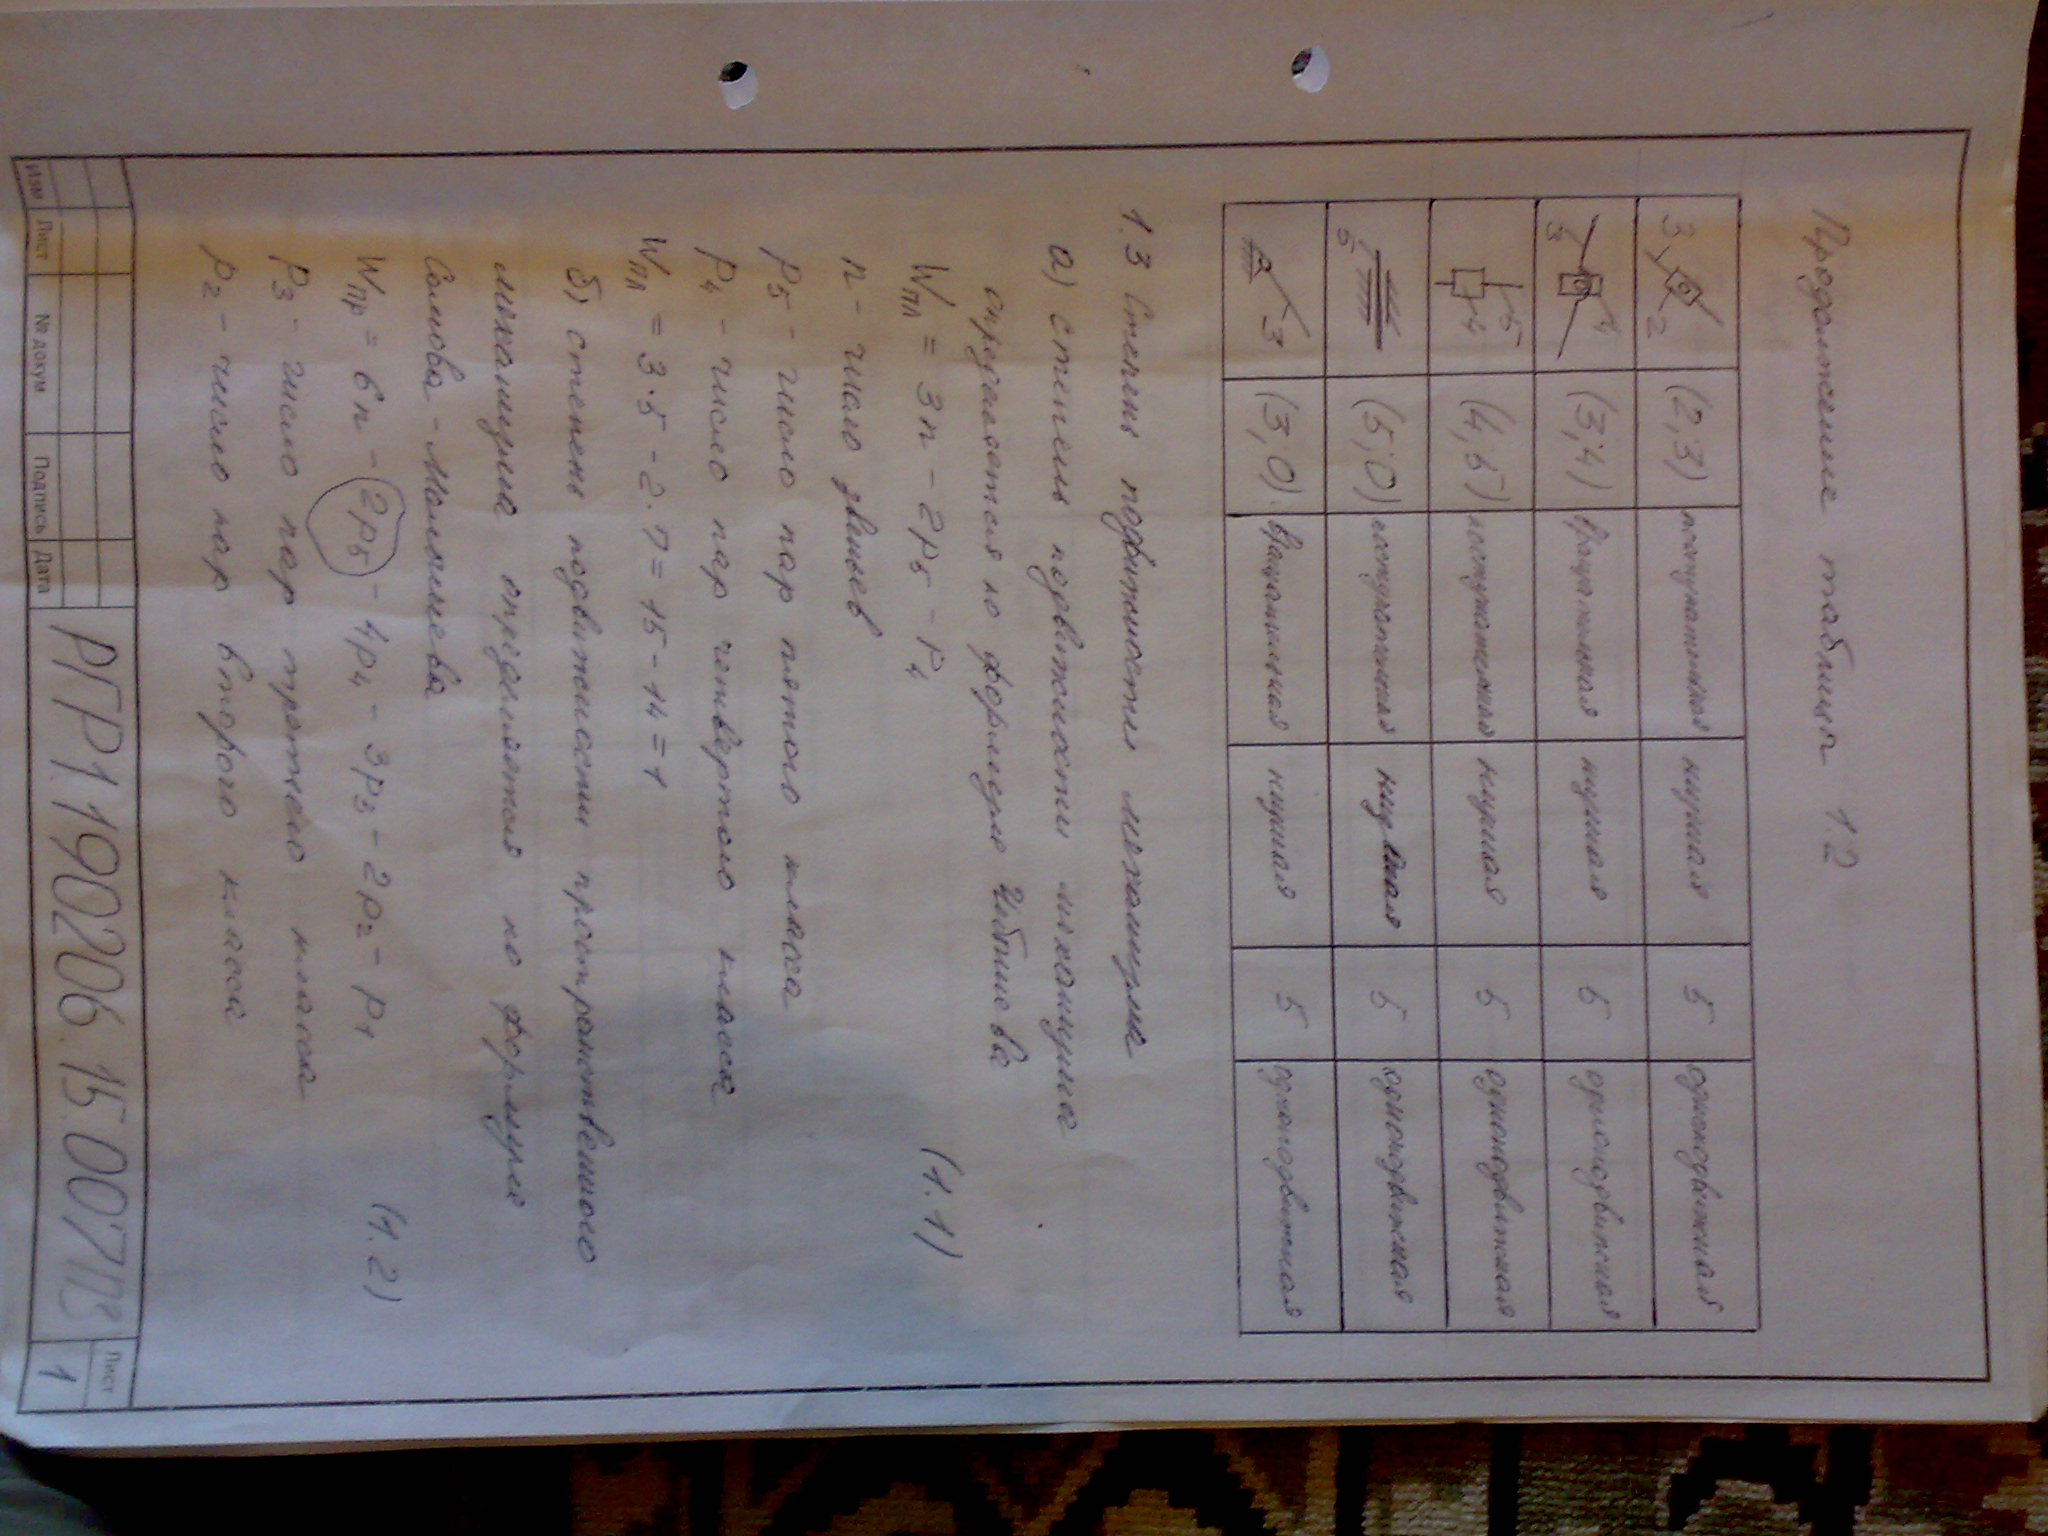 Продолжение таблицы 1.2
3 2 (2,3) поступательная низшая 5 одноподвижная
3 4 (3,4) вращательная низшая 5 одноподвижная
5 4 (4,5) поступательная низшая 5 одноподвижная
5 (5,0) поступательная низшая 5 одноподвижная
3 (3,0) вращательная низшая 5 одноподвижная
1.3 Степень подвижности механизма
а) степень подвижности механизма
определяется по формуле Чебышева
Wпл = 3n - 2P5 - P4 (1.1)
n - число звеньев
P5 - число пар пятого класса
P4 - число пар четвертого класса
Wпл = 3·5 - 2·7 = 15 - 14 = 1
б) степень подвижности пространственного
механизма определяется по формуле
Сомова - Малышева
Wпр = 6n - 2P5 - 4P4 - 3P3 - 2P2 - P1 (1.2)
P3 - число пар третьего класса
P2 - число пар второго класса
Изм Лист № докум Подпись Дата
РГР1 190206.15.007ПЗ
Лист
1